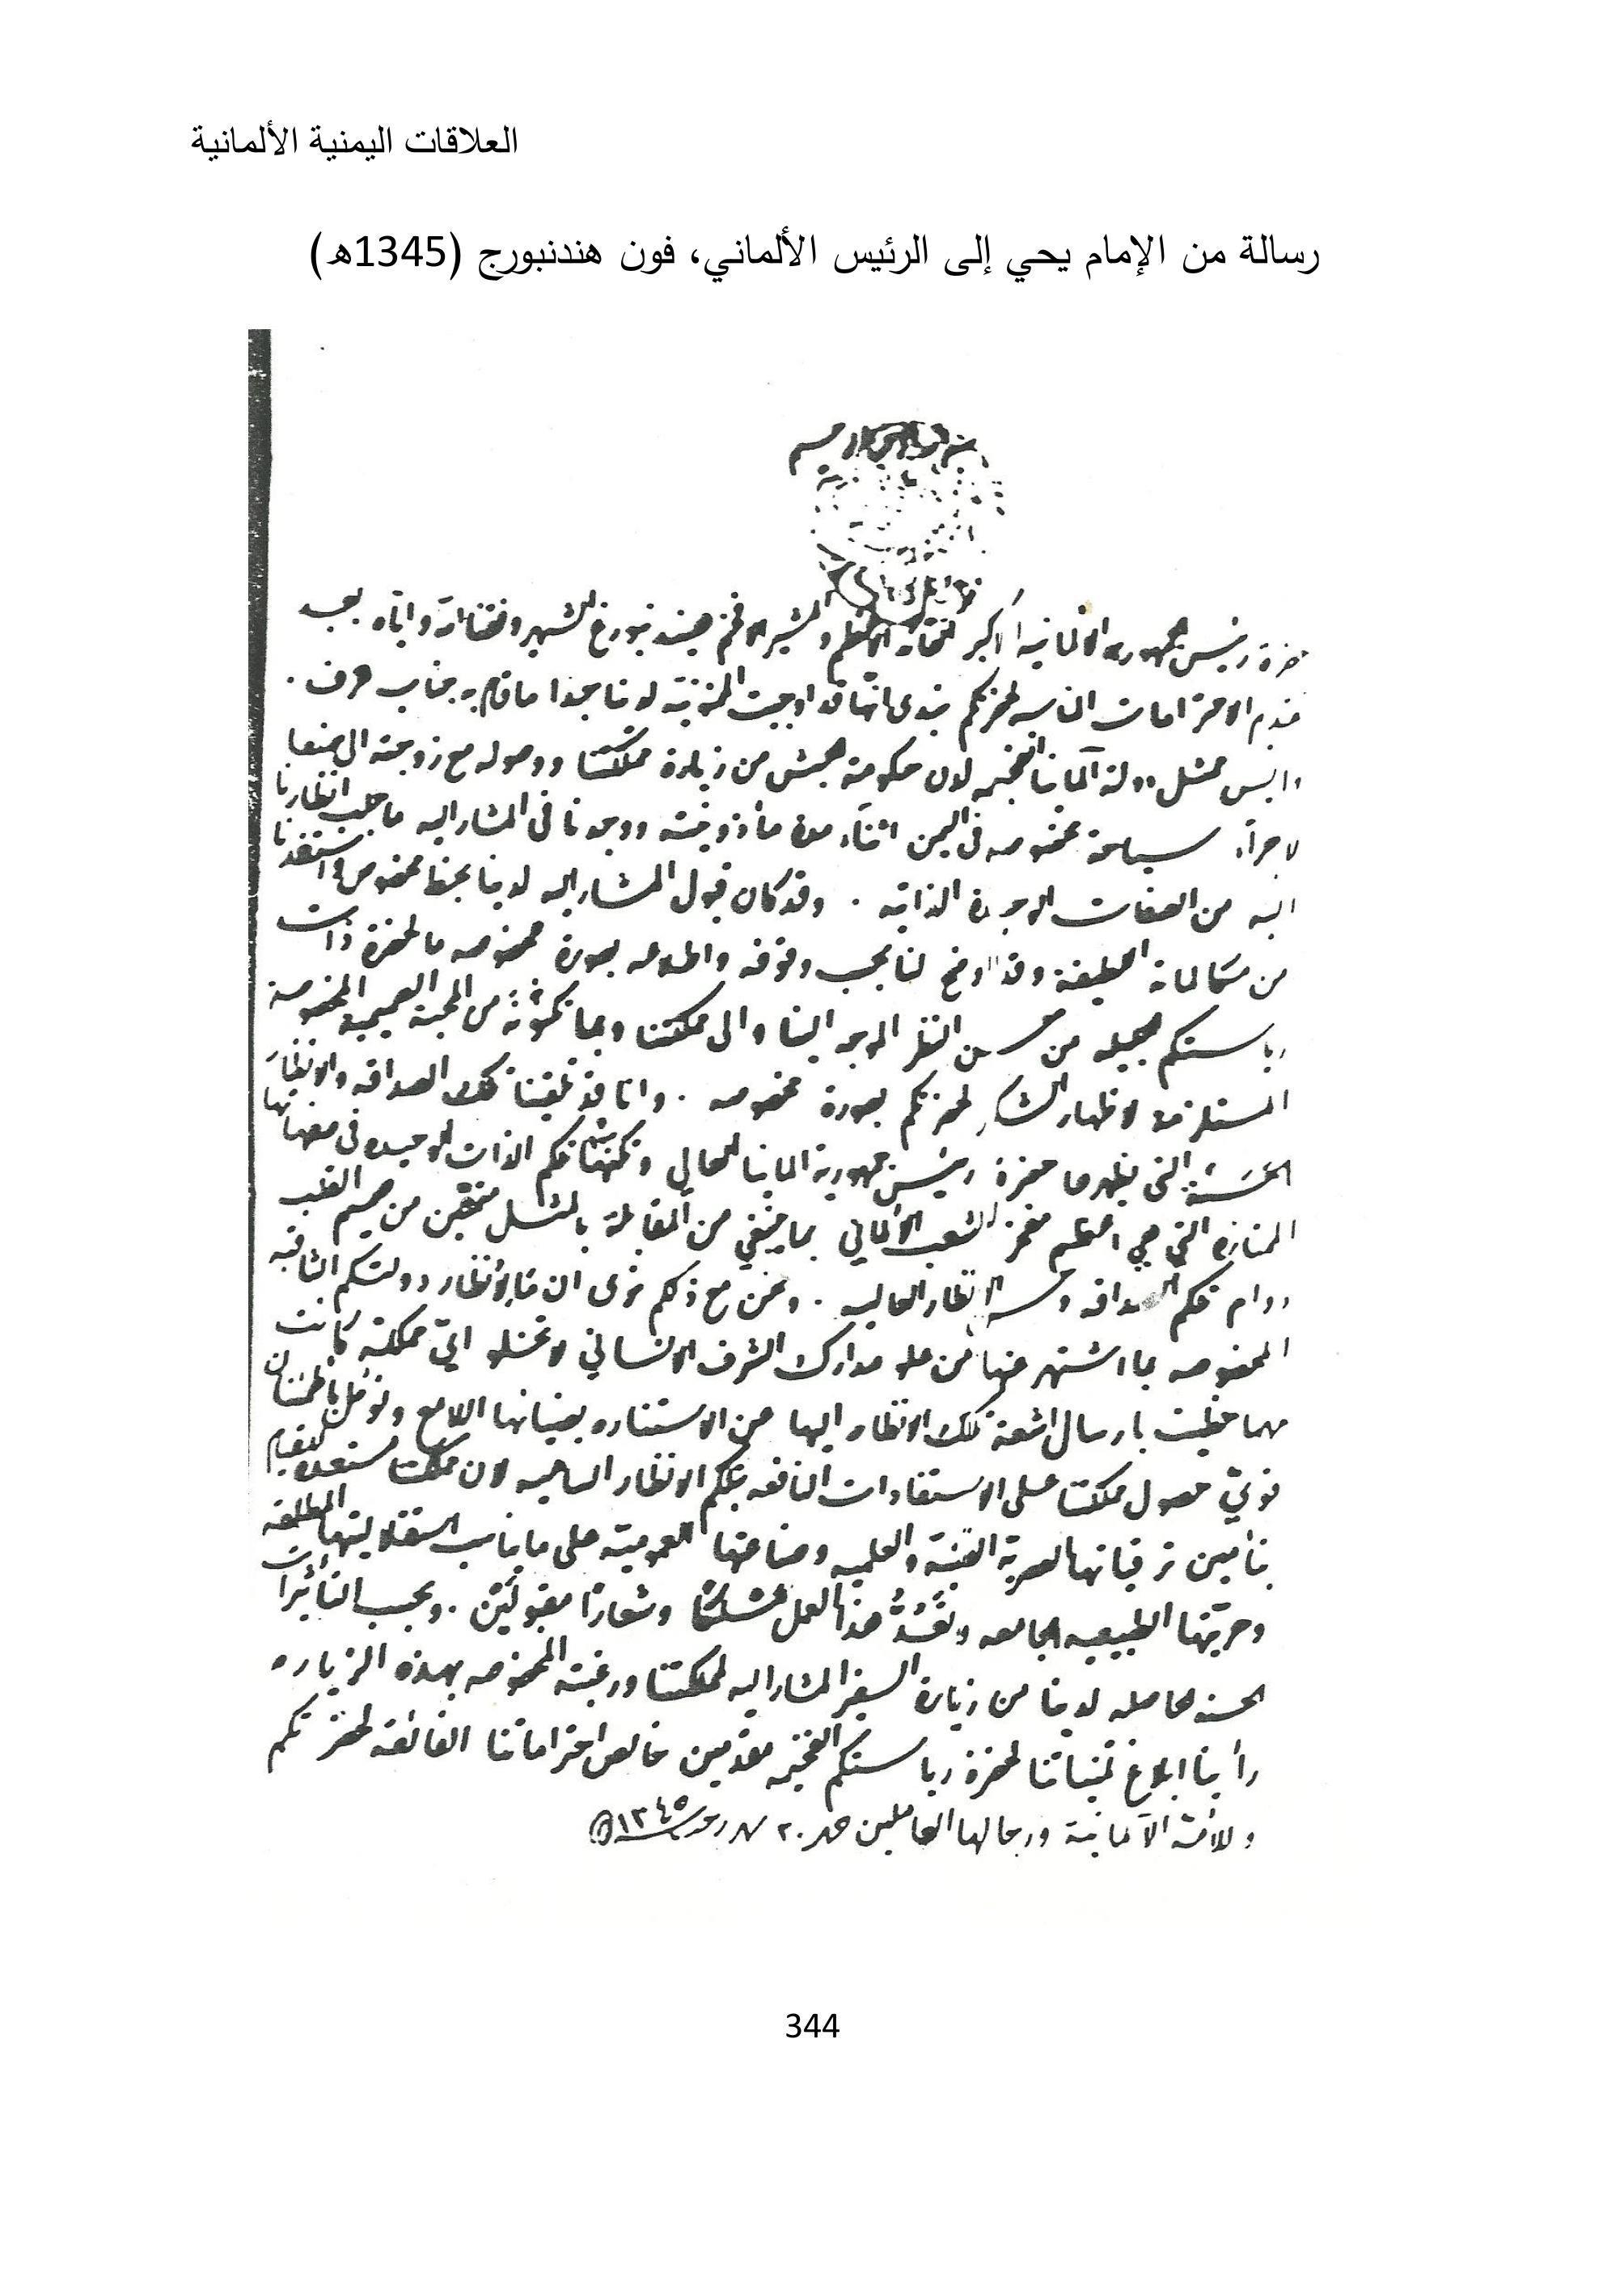 العلاقات اليمنية الألمانية
رسالة من الإمام يحي إلى الرئيس الألماني، فون هندنبورج (1345ه)
بسم الله الرحمن الرحيم
حضرة رئيس جمهورية الالمانية الاكبر الاعظم والمشير الافخم هيندنبورغ الشهير وفقنا الله واياه بعد
تقديم الاحترامات المناسبه لحضرتكم نبدى انها قد اوجبت الممنونية لدينا جدا ما قام به جناب فرف .
وايس ممثل دولة آلمانيا الفخيمه لدى حكومة الحبش من زيارة مملكتنا ووصوله مع زوجته الى صنعا
لاجراء سياحة مخصوصه فى اليمن اثناء مدة مأذونيته ووجدنا فى المشار اليه ما جلب انظارنا
اليه من الصفات الموجودة الذاتيه . وقد كان قبول المشار اليه لدينا بحضا مخصوص واستفدنا
من مكالماته اللطيفة وقد اوضح لنا بحسب وقوفه واطلاعه بصورة مخصوصه ما لحضرة ذات
رياستكم الجميله من حسن النظر الموجه الينا والى مملكتنا وبما تكنونه من المحبة الصميمية المخصوصة
المستلزمة لاظهار الشكر لحضرتكم بصورة مخصوصه . وانا قد تلقينا تلك الصداقه والانظار
الحسنة التى يظهرها حضرة رئيس جمهورية المانيا الحالي الذات الوحيده فى صفاتها
الممتازه التي هي اعظم مفخر للشعب الالماني بما ينبغي من المقابلة بالمثل متمنين من صميم القلب
دوام تلكم الصداقه وحسن الانظار العاليه . ونحن مع ذلكم نرى ان انظار دولتكم الثاقبه
المخصوصه بما اشتهر عنها من علو مدارك الشرف الانساني لا تخلو ايّ مملكة كانت
مهما حظيت بارسال اشعة تلك الانظار اليها من الاستناره بضيائها اللامع ونؤمل باطمئنان
قوي حصول مملكتنا على الاستفادات النافعه بتلكم الانظار الساميه لان مملكتنا مستعدة للقيام
بتأمين ترقياتها العصرية الفنية والعلميه ومنافعها العمومية على ما يناسب استقلاليتها المطلقه
وحريتها الطبيعيه الجامعه ونَعُدُّ هذا العمل مسلكًا وشعارًا مقبولَين . وبحسب التأثيرات
الحسنه الحاصله لدينا من زيارة السفير المشار اليه لمملكتنا ورغبته المخصوصه بهذه الزياره
رأينا ابلاغ تمنياتنا لحضرة رياستكم الفخيمه مقدمين خالص احتراماتنا الفائقة لحضرتكم
وللامة الآلمانية ورجالها العاملين ٢٠ ١٣٤٥
344